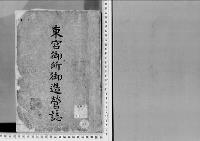 東宮御所御造営誌